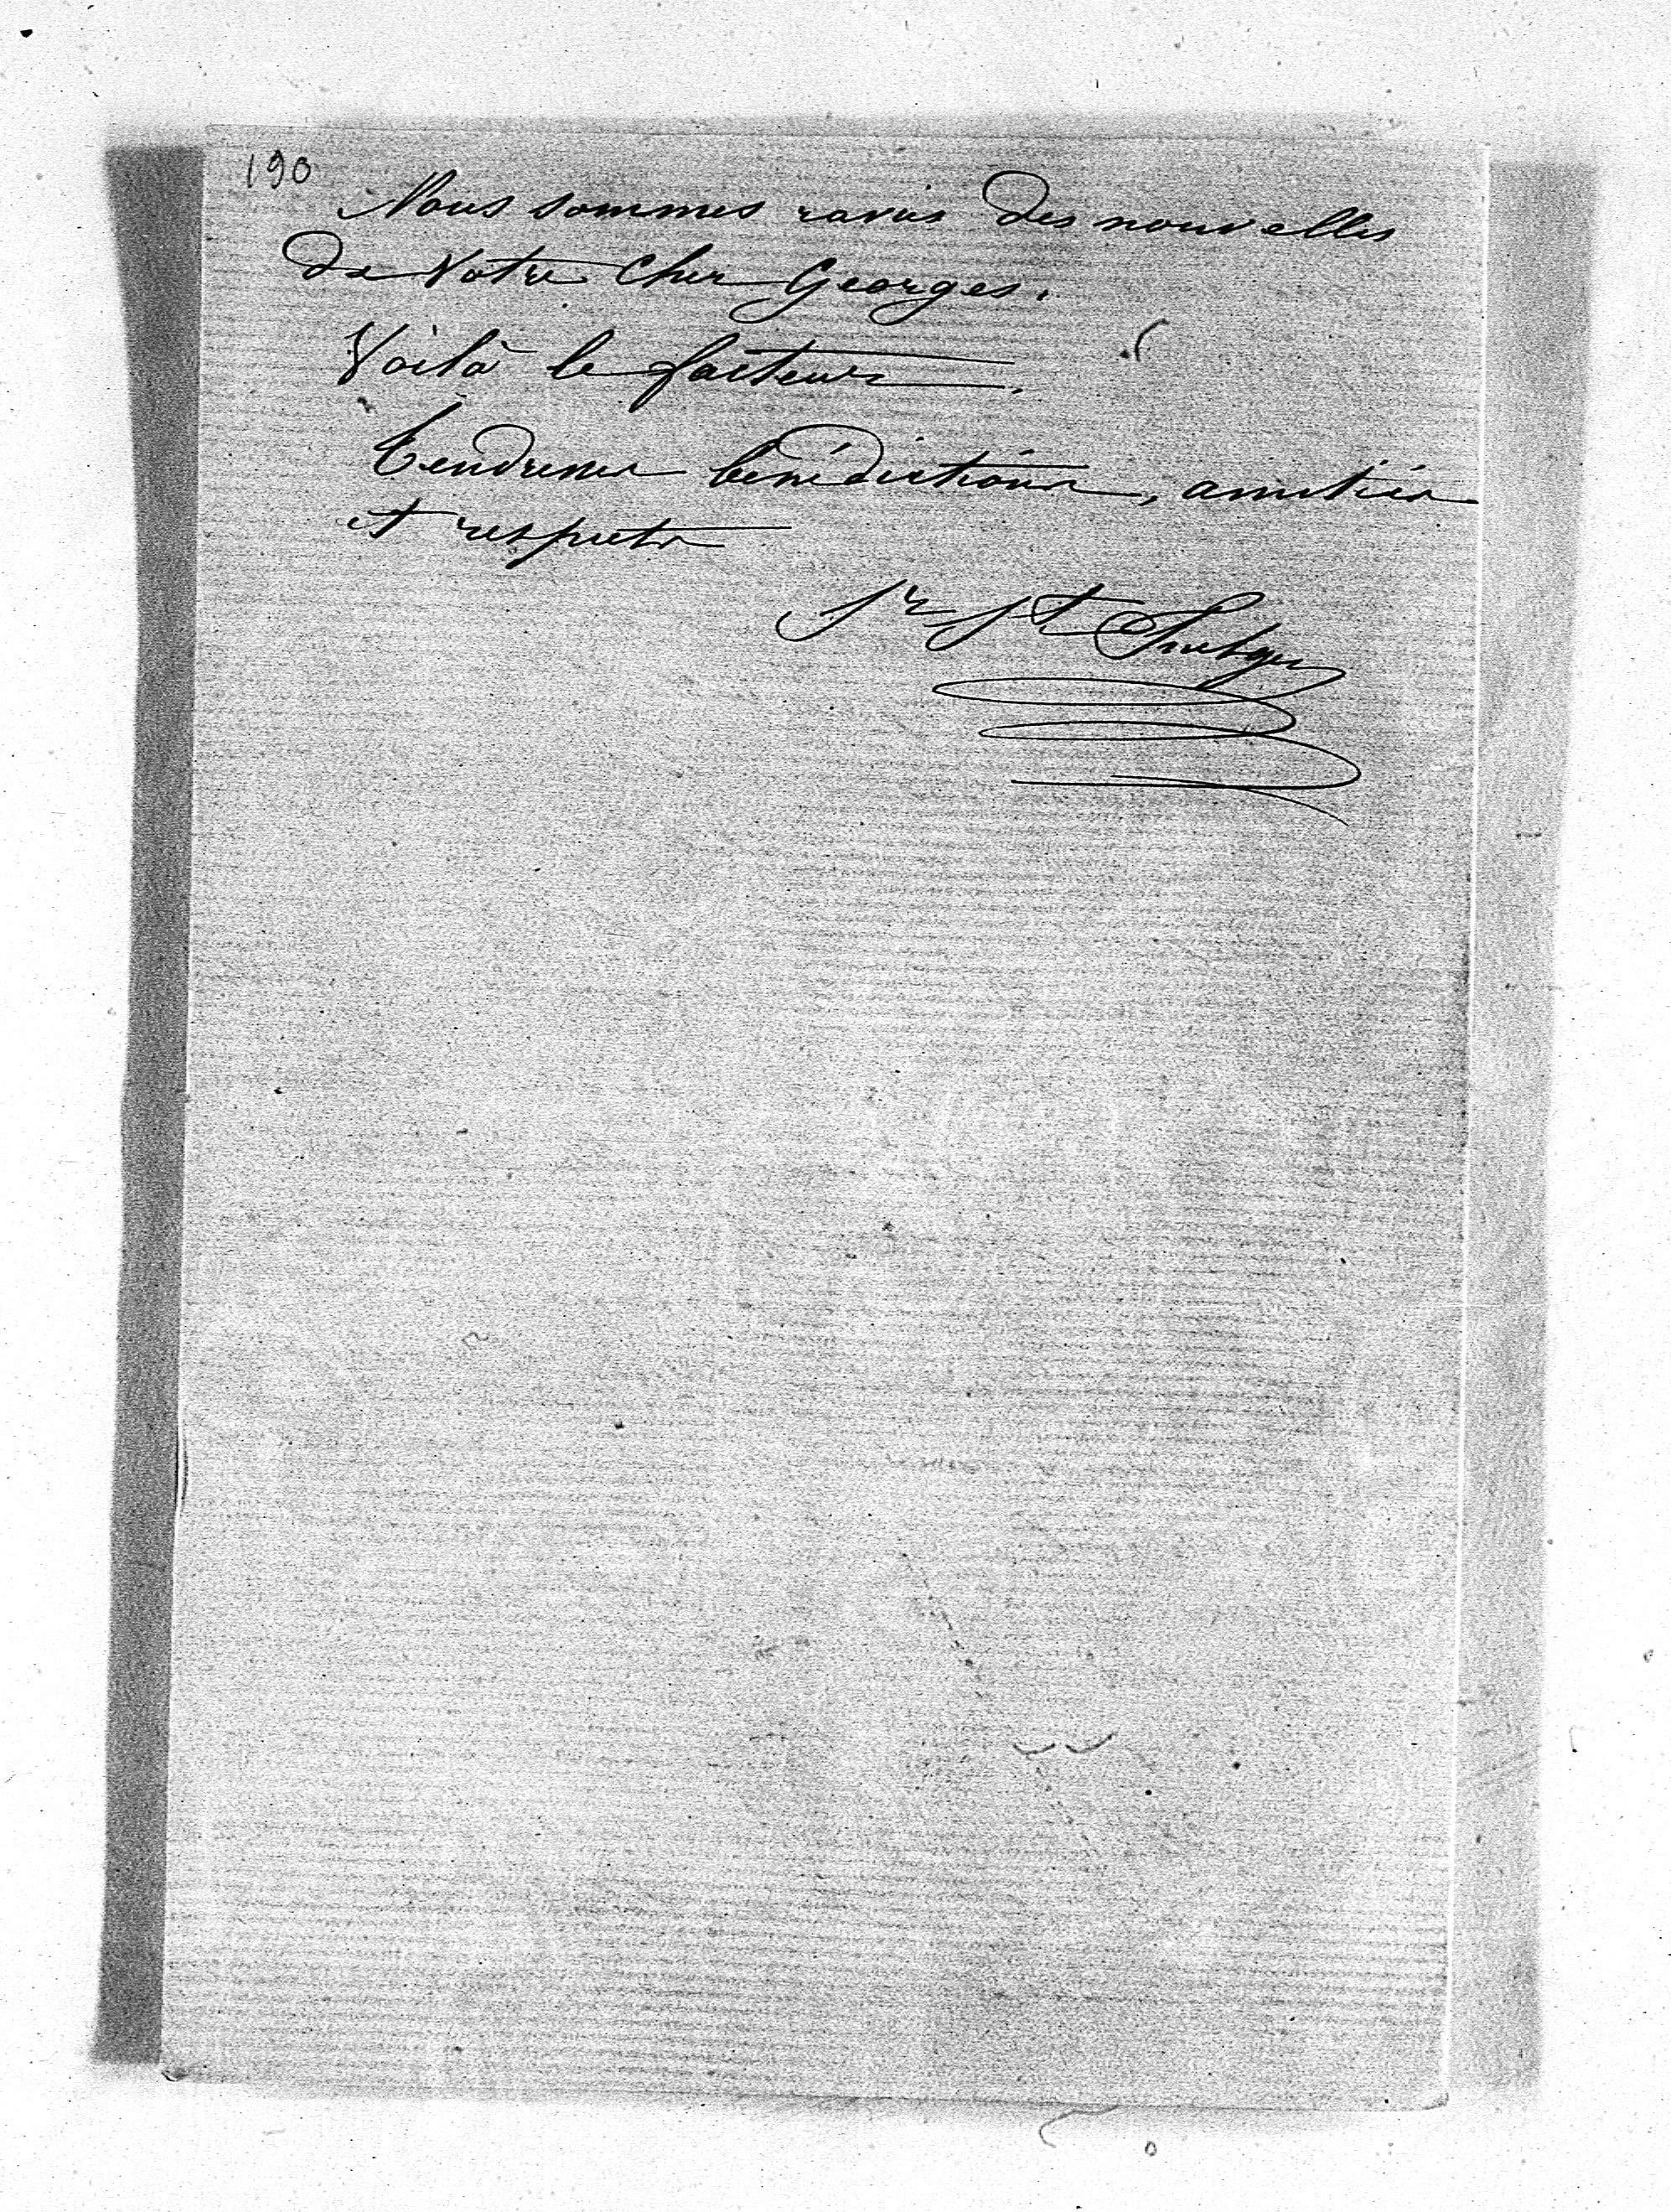 190
Nous sommes ravis des nouvelles
de votre cher Georges.
Voilà le facteur.
Tendresses bénédictions, amitiés
et respects